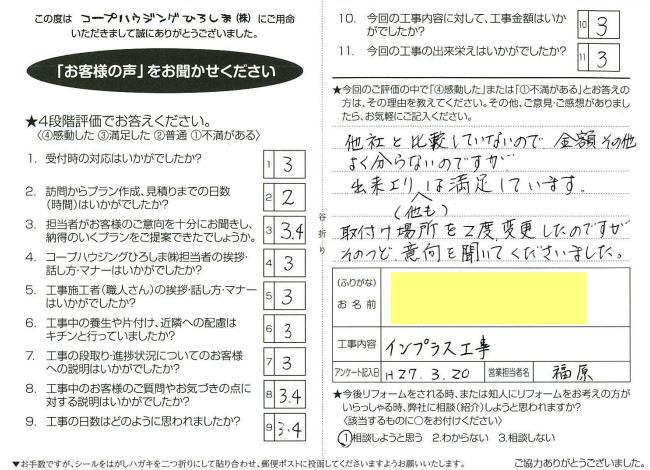 この度は コープハウジングひろしま(株) にご用命
いただきまして誠にありがとうございました。
「お客様の声」をお聞かせください
★4段階評価でお答えください。
〈④感動した ③満足した ②普通 ①不満がある〉
1. 受付時の対応はいかがでしたか? 1 3
2. 訪問からプラン作成、見積りまでの日数
(時間)はいかがでしたか? 2 2
3. 担当者がお客様のご意向を十分にお聞きし、
納得のいくプランをご提案できたでしょうか。 3 3.4
4. コープハウジングひろしま㈱担当者の挨拶・
話し方・マナーはいかがでしたか? 4 3
5. 工事施工者(職人さん)の挨拶・話し方・マナー
はいかがでしたか? 5 3
6. 工事中の養生や片付け、近隣への配慮は
キチンと行っていましたか? 6 3
7. 工事の段取り・進捗状況についてのお客様
への説明はいかがでしたか? 7 3
8. 工事中のお客様のご質問やお気づきの点に
対する説明はいかがでしたか? 8 3.4
9. 工事の日数はどのように思われましたか? 9 3.4
谷折り
10. 今回の工事内容に対して、工事金額はいか
がでしたか? 10 3
11. 今回の工事の出来栄えはいかがでしたか? 11 3
★今回のご評価の中で「④感動した」または「①不満がある」とお答え
の方は、その理由を教えてください。その他、ご意見・ご感想がありまし
たら、お気軽にご記入ください。
他社と比較していないので 金額その他
よく分らないのですが
出来エリは満足しています。
(他も)
取付け場所を2度、変更したのですが
そのつど意向を聞いてくださいました。
(ふりがな)
お名前
工事内容 インプラス工事
アンケート記入日 H27.3.20 営業担当者名 福原
★今後リフォームをされる時、または知人にリフォームをお考えの方が
いらっしゃる時、弊社に相談(紹介)しようと思われますか?
〈該当するものに○をお付けください〉
①相談しようと思う 2.わからない 3.相談しない
▼お手数ですが、シールをはがしハガキを二つ折りにして貼り合わせ、郵便ポストに投函してくださいますようお願いいたします。 ご協力ありがとうございました。